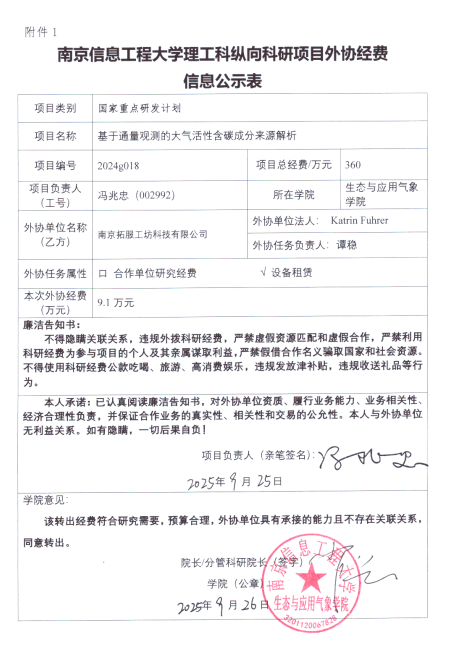 附件 1
南京信息工程大学理工科纵向科研项目外协经费
信息公示表
项目类别 国家重点研发计划
项目名称 基于通量观测的大气活性含碳成分来源解析
项目编号 2024g018 项目总经费/万元 360
项目负责人（工号） 冯兆忠（002992） 所在学院 生态与应用气象学院
外协单位名称（乙方） 南京拓服工坊科技有限公司 外协单位法人： Katrin Fuhrer
外协任务负责人：谭稳
外协任务属性 口 合作单位研究经费 √ 设备租赁
本次外协经费（万元） 9.1 万元
廉洁告知书：
不得隐瞒关联关系，违规外拨科研经费，严禁虚假资源匹配和虚假合作，严禁利用
科研经费为参与项目的个人及其亲属谋取利益，严禁假借合作名义骗取国家和社会资源。
不得使用科研经费公款吃喝、旅游、高消费娱乐，违规发放津补贴，违规收送礼品等行
为。
本人承诺：已认真阅读廉洁告知书，对外协单位资质、履行业务能力、业务相关性、
经济合理性负责，并保证合作业务的真实性、相关性和交易的公允性。本人与外协单位
无利益关系。如有隐瞒，一切后果自负！
项目负责人（亲笔签名）：
2025年 9月 25日
学院意见：
该转出经费符合研究需要，预算合理，外协单位具有承接的能力且不存在关联关系，
同意转出。
院长/分管科研院长（签字）
学院（公章）
2025年 9月 26日
南京信息工程大学
生态与应用气象学院
3201120067828